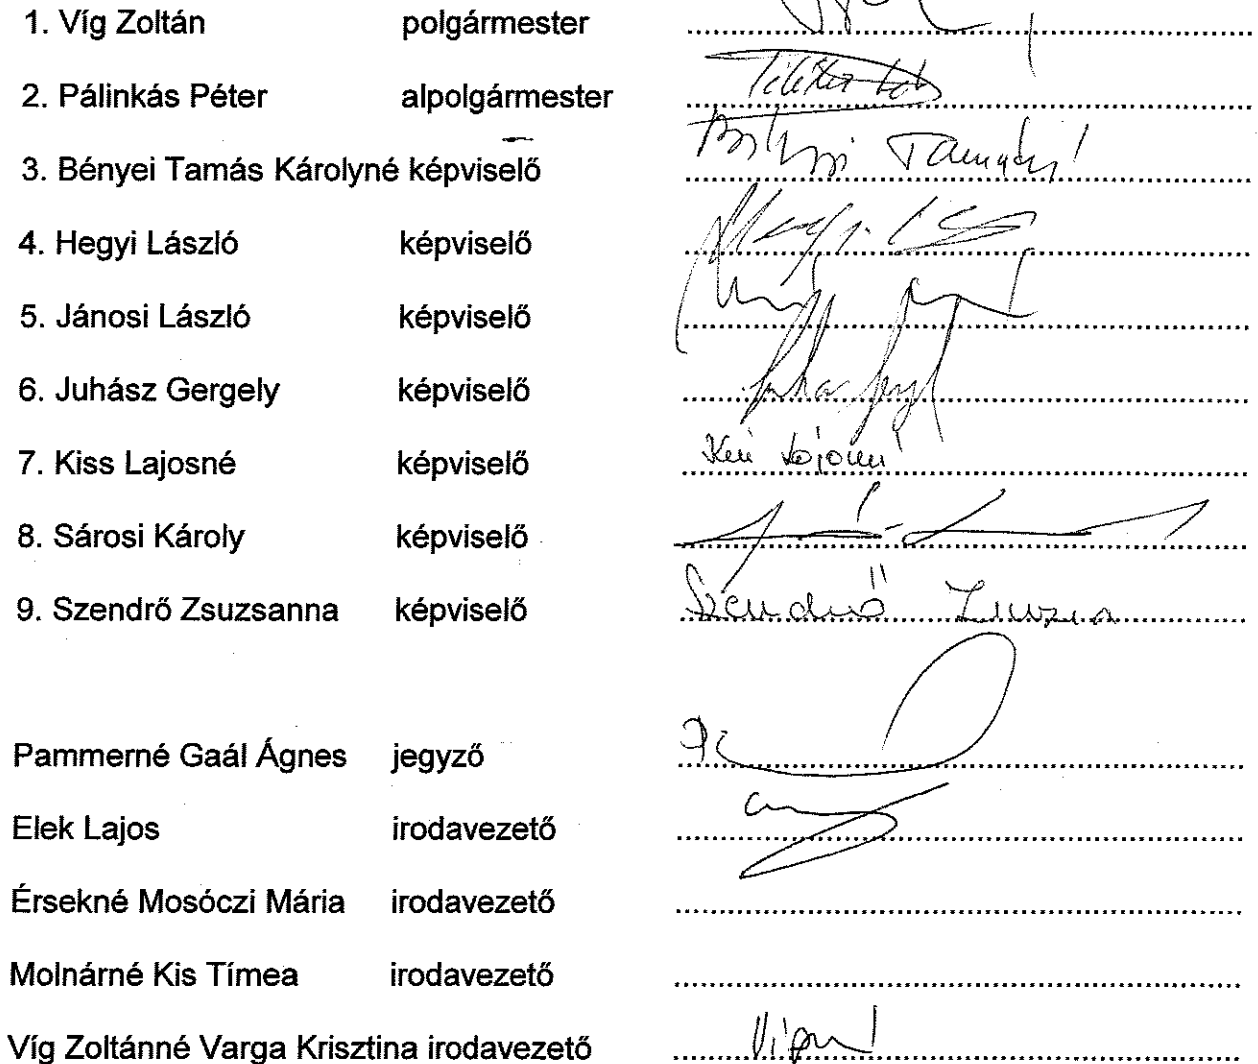 1. Víg Zoltán polgármester
2. Pálinkás Péter alpolgármester
3. Bényei Tamás Károlyné képviselő
4. Hegyi László képviselő
5. Jánosi László képviselő
6. Juhász Gergely képviselő
7. Kiss Lajosné képviselő
8. Sárosi Károly képviselő
9. Szendrő Zsuzsanna képviselő Szendrő
Pammerné Gaál Ágnes jegyző
Elek Lajos irodavezető
Érsekné Mosóczi Mária irodavezető
Molnárné Kis Tímea irodavezető
Víg Zoltánné Varga Krisztina irodavezető